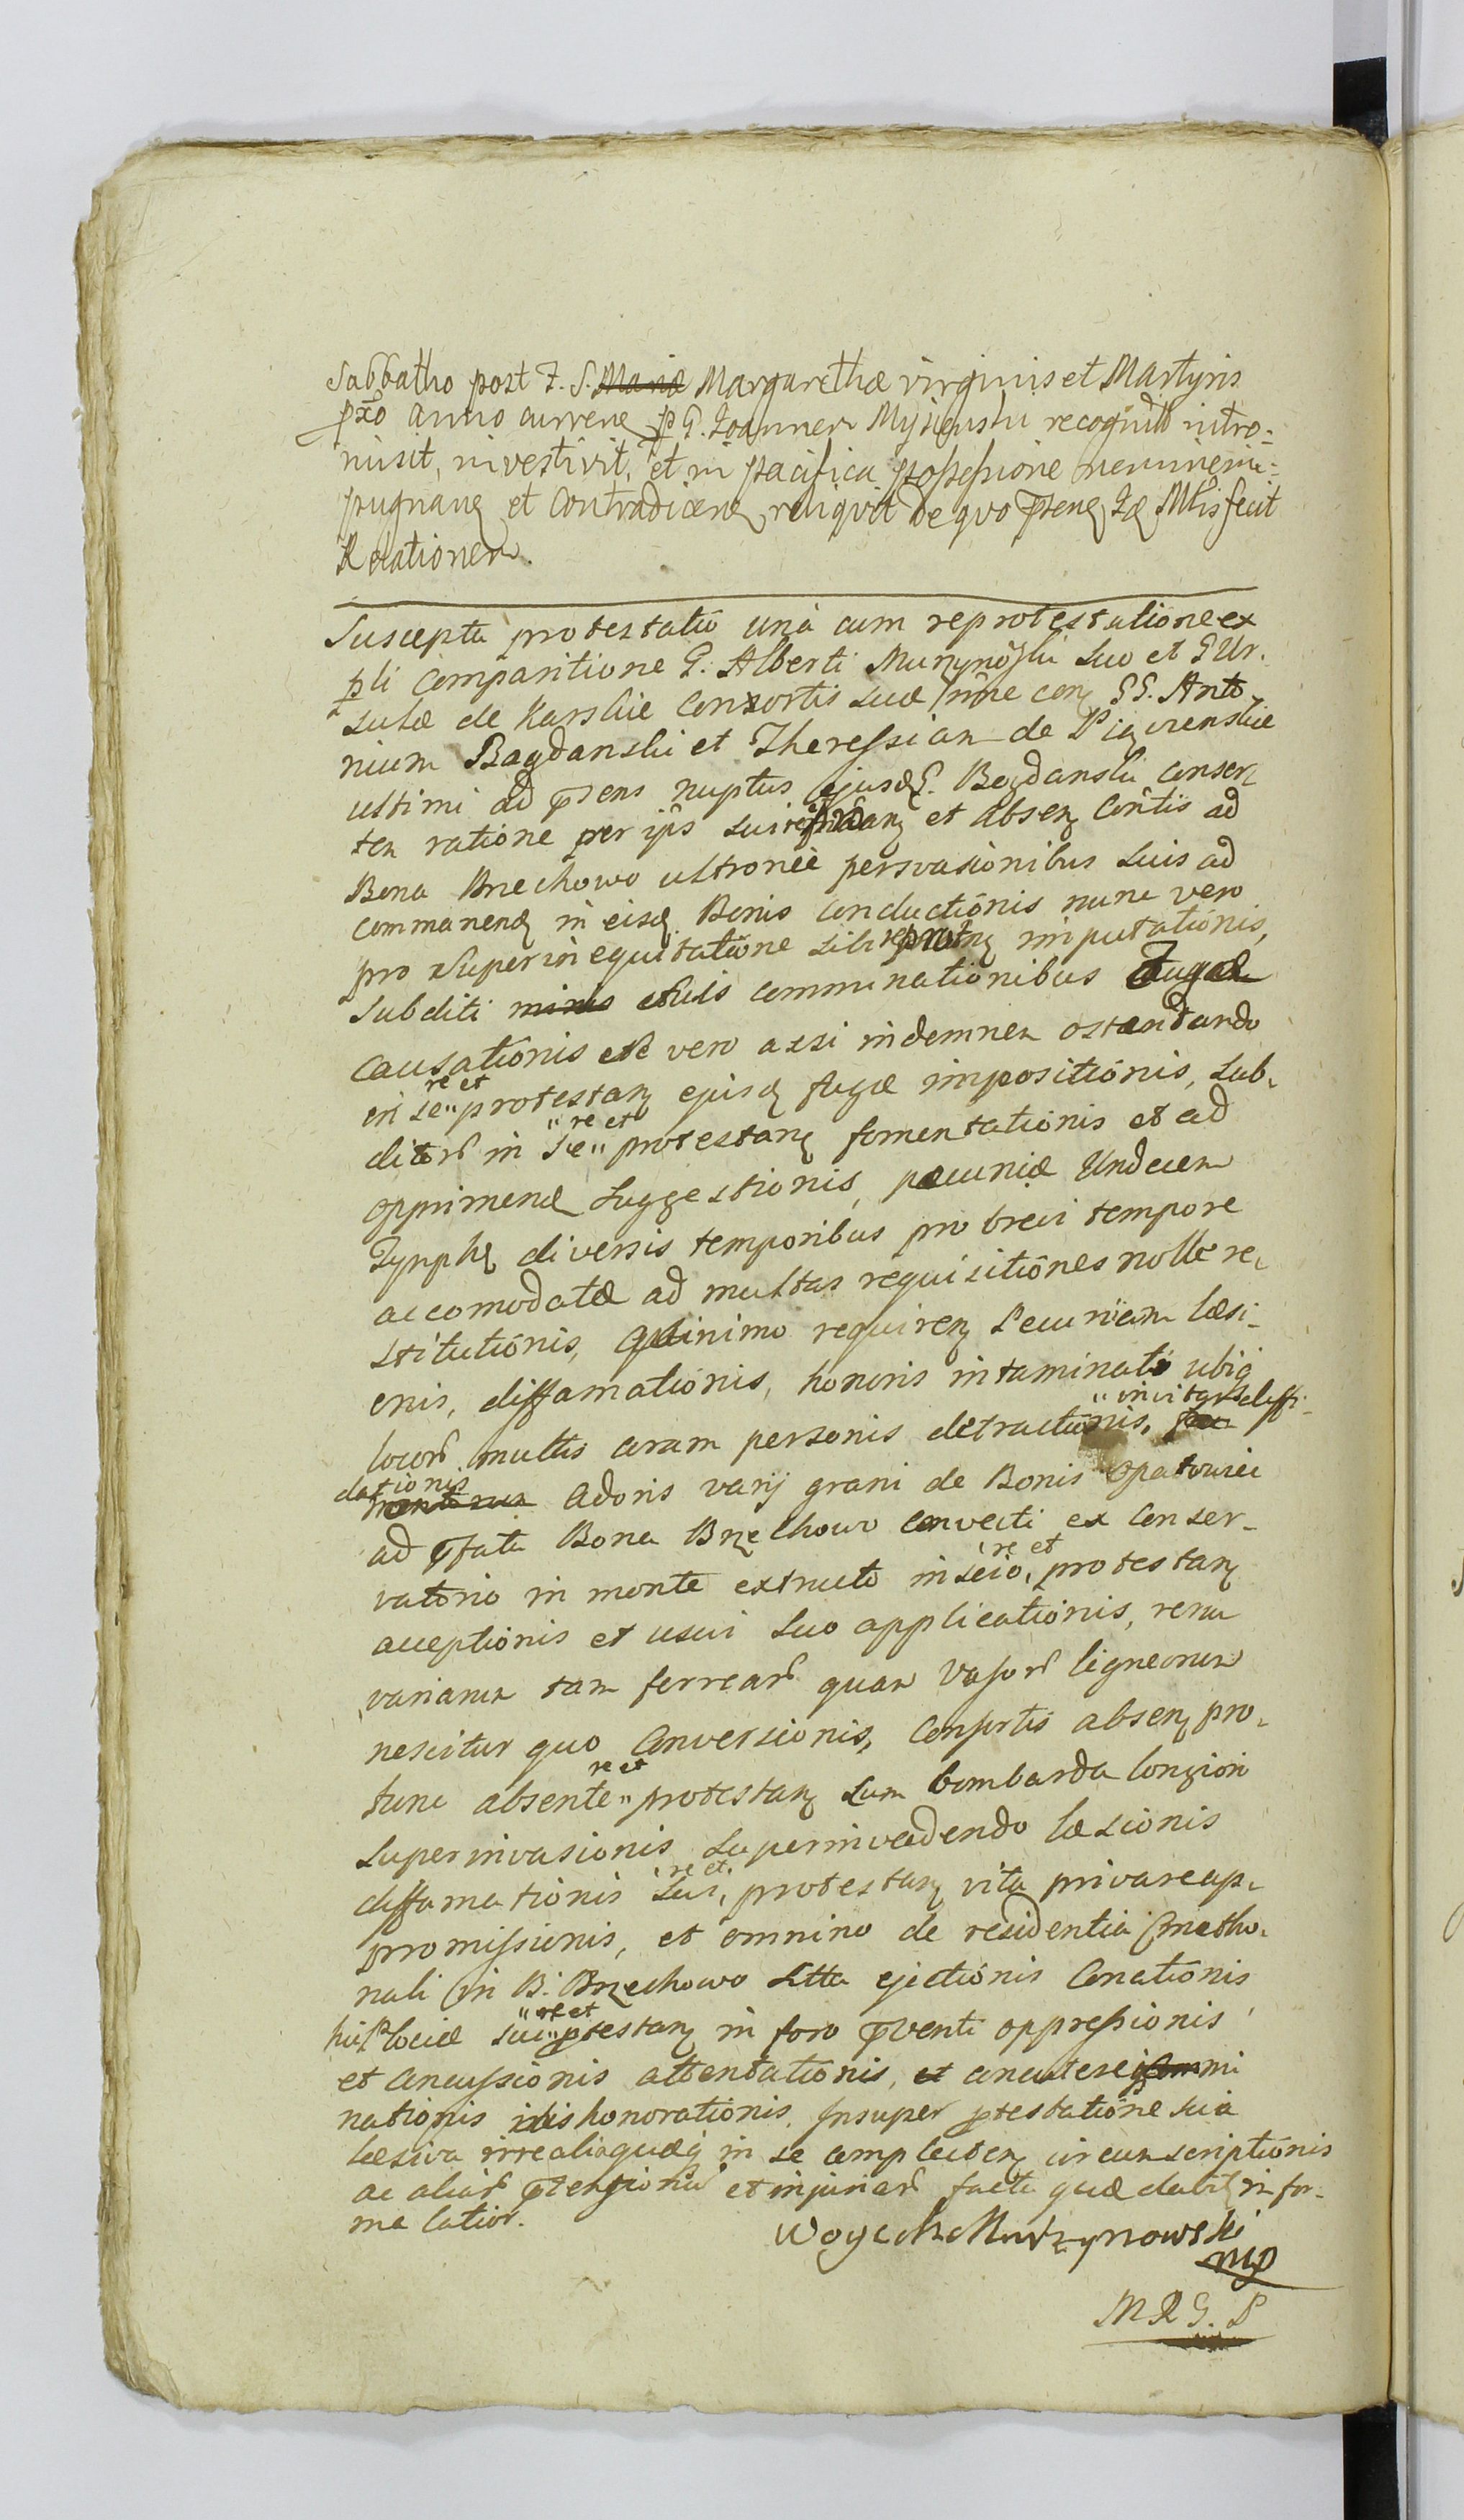 Sabbatho post F. S. Mariæ Margarethæ virginis et Martyris
pxo anno curren p G. Joannem recognitt intro-
misit, investivit, et in pacifica possessione nemine im-
pugnan et Contradicen reliquit de quo psens Mtlis fecit
Relationem.
Suscepta protestatio unà cum reprotestatione ex
pli Comparitione G. Alberti suo et G Ur-
sulæ de Karskie Consortis suæ nñe con GG. Anto-
nium Bagdanski et Theressiam de
ultimi ad psens nuptus ejusd G. Bogdanski consor-
tem ratione per ips sui et absen Contis ad
Bona Brzechowo ultronèe persvasionibus suis ad
commanend in eisd Bonis Conductionis nunc vero
pro superinequitatione sibi imputationis,
subditi minis suis comminationibus Fugæ
Causationis se vero assi indemnem ostendando
in se " re et " protestan ejusd fugæ impositionis, sub-
ditor in se " re et " protestan fomentationis et ad
opprimend suggestionis, pecuniæ Undecem
Tynph diversis temporibus pro brevi tempore
accomodatæ ad multas requisitiones nolle re-
stitutionis, Quinimo requiren Pecuniam læsi-
onis, diffamationis, honoris intaminati ubiq
locor multis coram personis detractionis, diffi-
dationis Adoris varij grani de Bonis Opatowiec
ad pfata Bona Brzechowo convecti ex Conser-
vatorio in monte extructo inscio " re et " protestan
acceptionis et usui suo applicationis, rerum
variarum tam ferrear quam Vasor ligneorum
nescitur quo Conversionis, Consortis absen pro-
tunc absente " re et " protestan cum bombarda longiori
superinvasionis superinvadendo læsionis
diffamationis sui " re et " protestan vita privare ap-
promissionis, et omnino de residentia Cmetho-
nali in B. Brzechowo sitta ejectionis Conationis
sui " re et " ptestan in foro pventi oppressionis
et Concussionis attentationis, et
nationis dishonorationis. Insuper ptestatione sua
læsiva irrealiaquæq in se complecten circumscriptionis
ac aliar ptensionu et injuriar facta quæ dabit in for-
ma latior.
Woyciech Murzynowski
mp
M R G. P